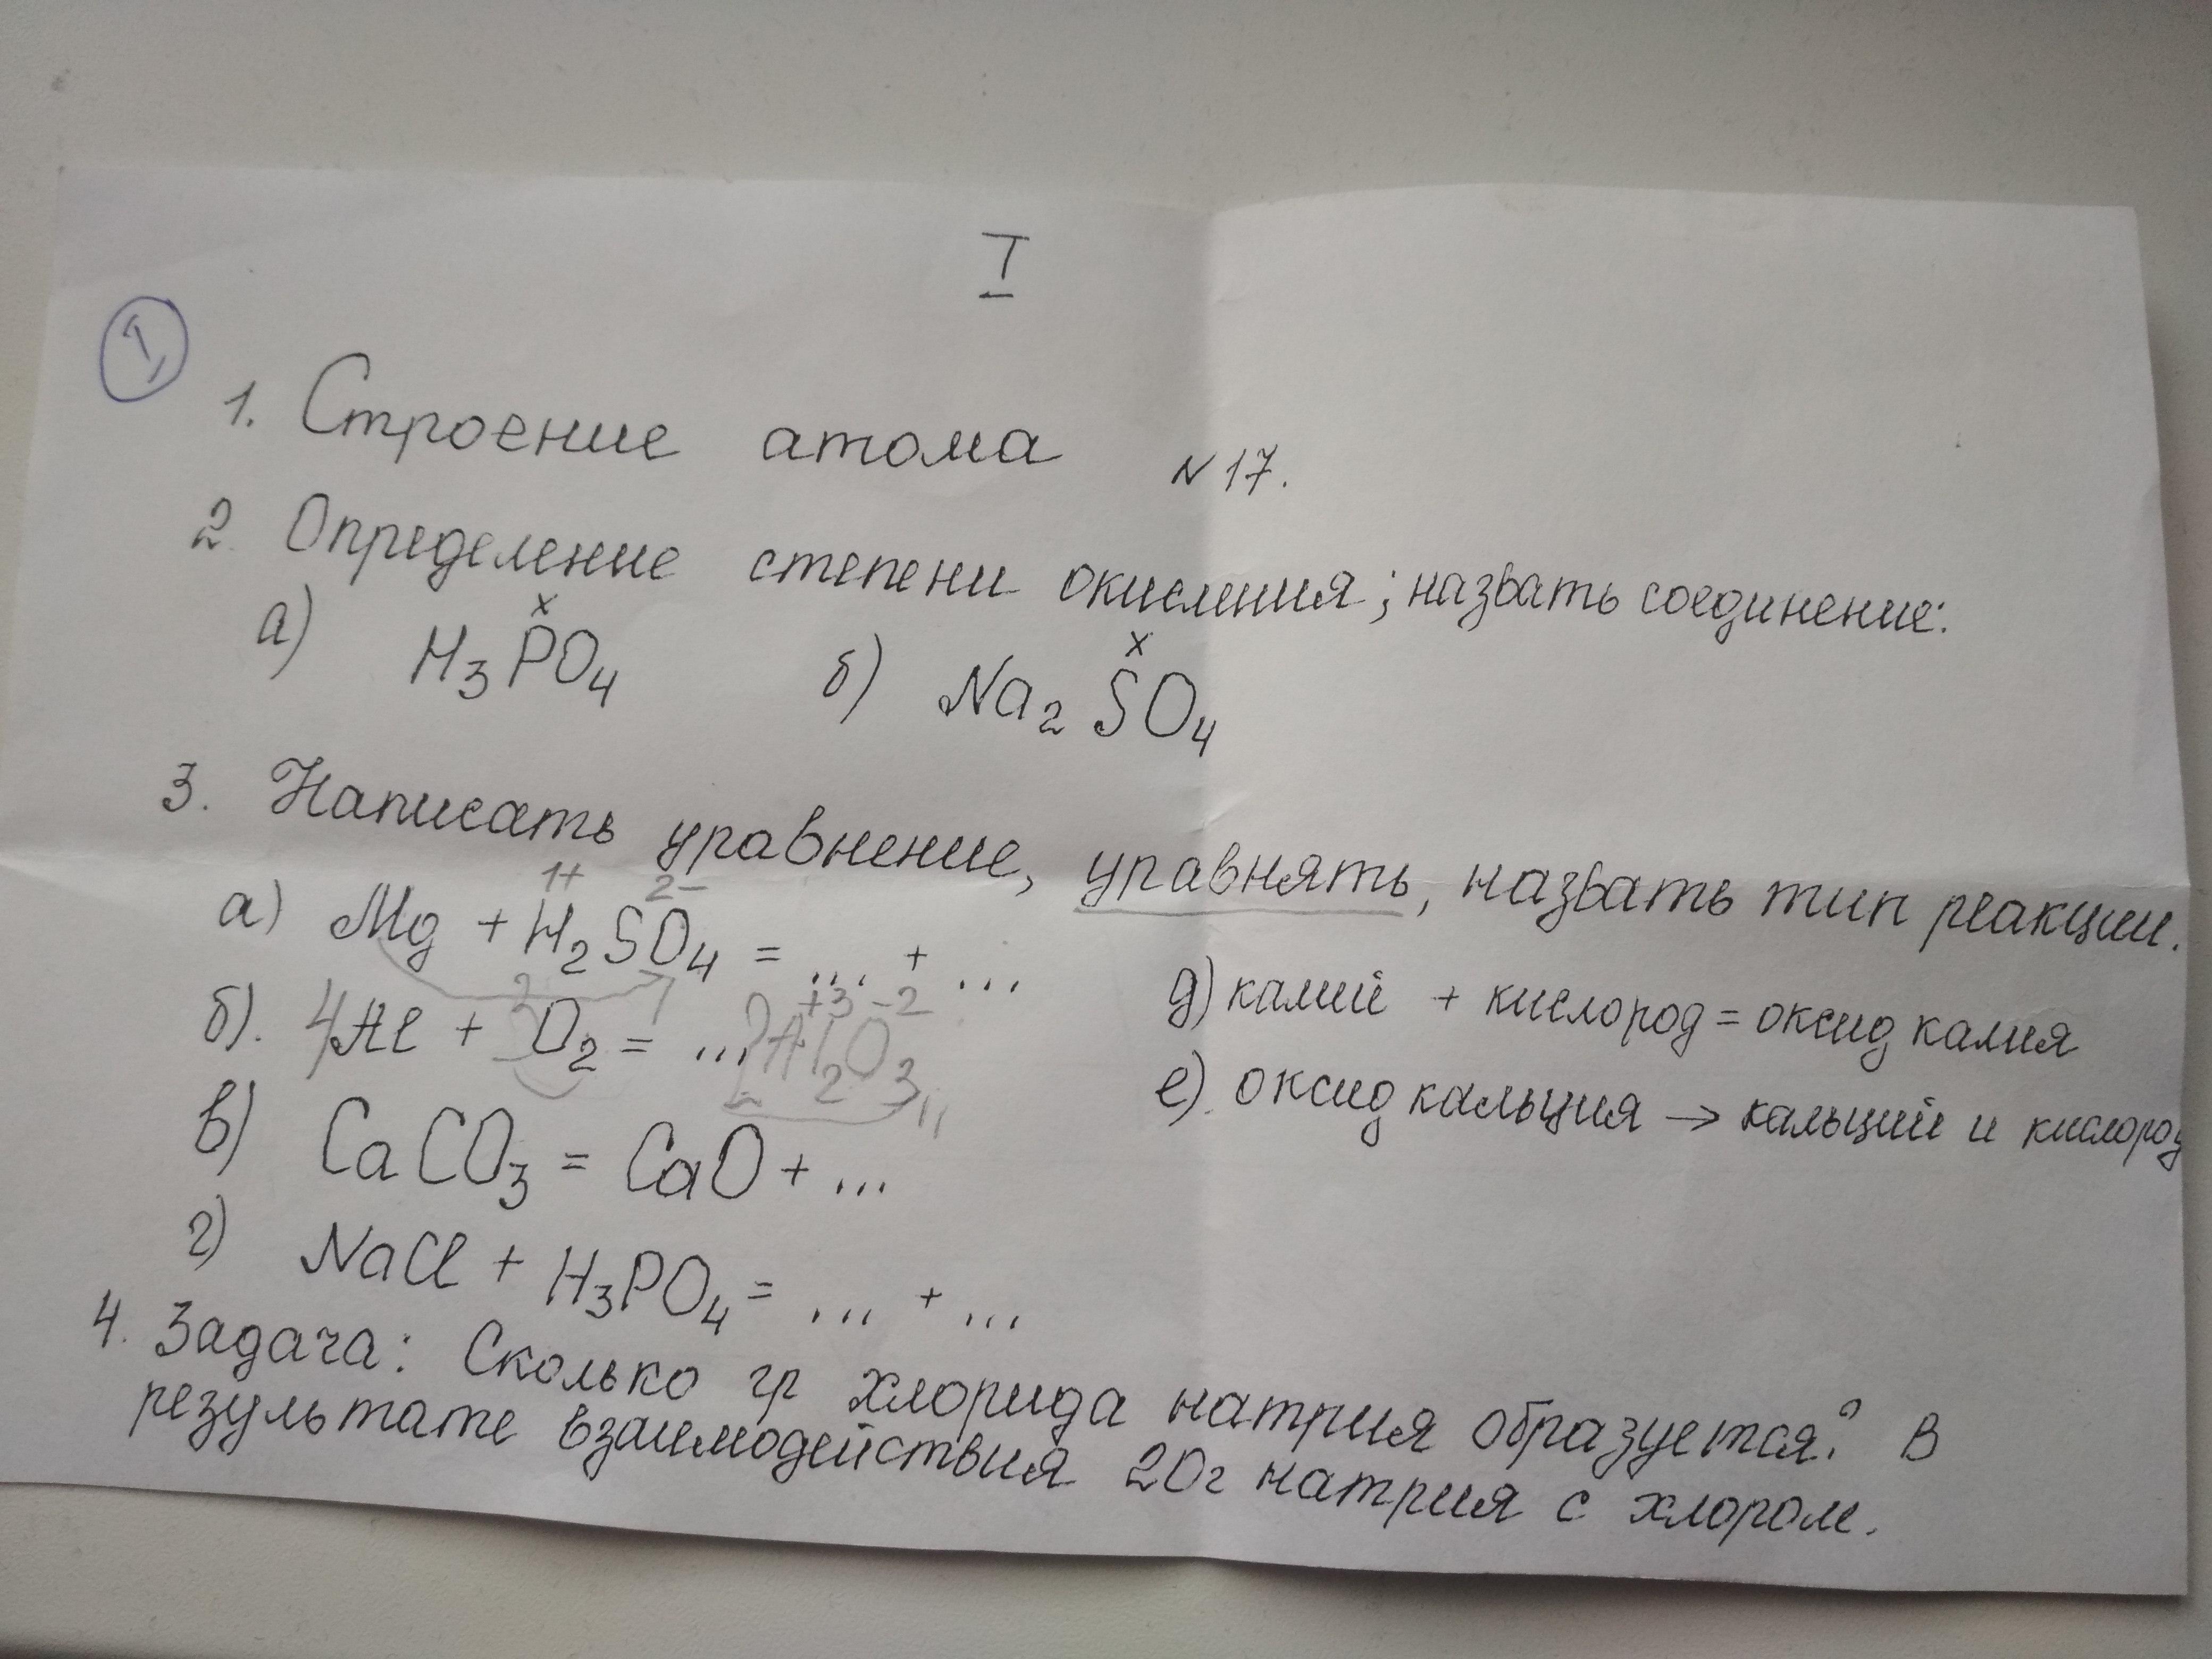 I
1,
1. Строение атома N 17.
2. Определение степени окисления; назвать соединение:
а) H₃PO₄ б) Na₂SO₄
x x
3. Написать уравнение, уравнять, назвать тип реакции.
1+ 2-
а) Mg + H₂SO₄ = ... + ...
+3 -2
б). 4Al + 3O₂ = ... 2Al₂O₃
в) CaCO₃ = CaO + ...
г) NaCl + H₃PO₄ = ... + ...
д) калий + кислород = оксид калия
е). оксид кальция → кальций и кислород
4. Задача: Сколько гр хлорида натрия образуется? В
результате взаимодействия 20г натрия с хлором.